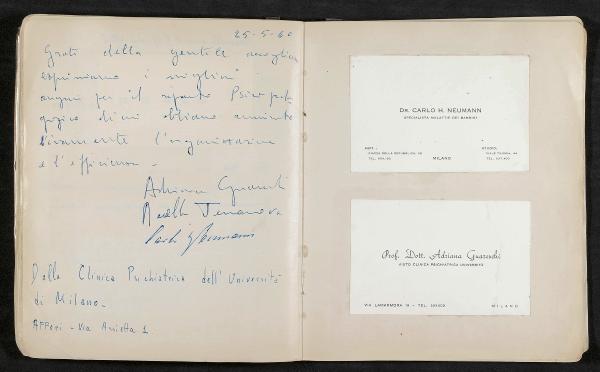 25-5-60
Grati della gentile accoglienza
esprimiamo i migliori
auguri per il reparto Psicopeda
gogico di cui abbiamo ammirato
vivamente l'organizzazione
e l'efficienza.
Adriana Guareschi
Carlo Neumann
Dalla Clinica Psichiatrica dell'Università
di Milano.
Affori - Via Assietta 1
DR. CARLO H. NEUMANN
SPECIALISTA MALATTIE DEI BAMBINI
ABIT.:
PIAZZA DELLA REPUBBLICA,
TEL.
MILANO
STUDIO:
VIALE TUNISIA,
TEL.
Prof. Dott. Adriana Guareschi
AIUTO CLINICA PSICHIATRICA UNIVERSITÀ
VIA LAMARMORA - TEL.
MILANO